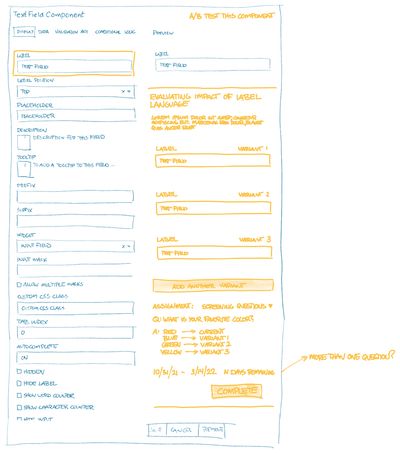 Text Field Component
A/B TEST THIS COMPONENT
DISPLAY DATA VALIDATION API CONDITIONAL LOGIC
PREVIEW
LABEL
TEXT FIELD
LABEL POSITION
TOP
PLACEHOLDER
PLACEHOLDER
DESCRIPTION
DESCRIPTION FOR THIS FIELD
TOOLTIP
TO ADD A TOOLTIP TO THIS FIELD...
PREFIX
SUFFIX
WIDGET
INPUT FIELD
INPUT MASK
ALLOW MULTIPLE MASKS
CUSTOM CSS CLASS
CUSTOM CSS CLASS
TAB INDEX
0
AUTOCOMPLETE
ON
HIDDEN
HIDE LABEL
SHOW WORD COUNTER
SHOW CHARACTER COUNTER
HIDE INPUT
LABEL
TEXT FIELD
EVALUATING IMPACT OF LABEL
LANGUAGE
LOREM IPSUM DOLOR SIT AMET, CONSECTETUR
LABEL VARIANT 1
TEXT FIELD
LABEL VARIANT 2
TEXT FIELD
LABEL VARIANT 3
TEXT FIELD
ADD ANOTHER VARIANT
ASSIGNMENT: SCREENING QUESTIONS
Q: WHAT IS YOUR FAVORITE COLOR?
A: RED → CURRENT
BLUE → VARIANT 1
GREEN → VARIANT 2
YELLOW → VARIANT 3
→ MORE THAN ONE QUESTION?
N DAYS REMAINING
COMPLETE
CANCEL